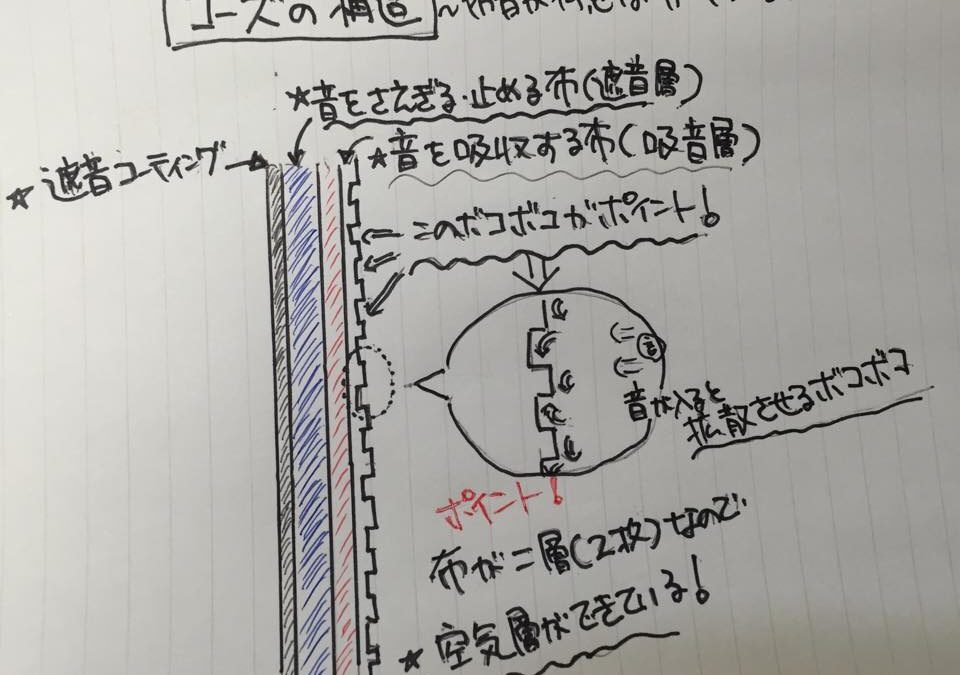 コーズの構造
★音をさえぎる・止める布(遮音層)
★遮音コーティング
★音を吸収する布(吸音層)
このボコボコがポイント!
音
音が入ると
拡散させるボコボコ
ポイント!
布が二層(2枚)なので
★空気層ができている!